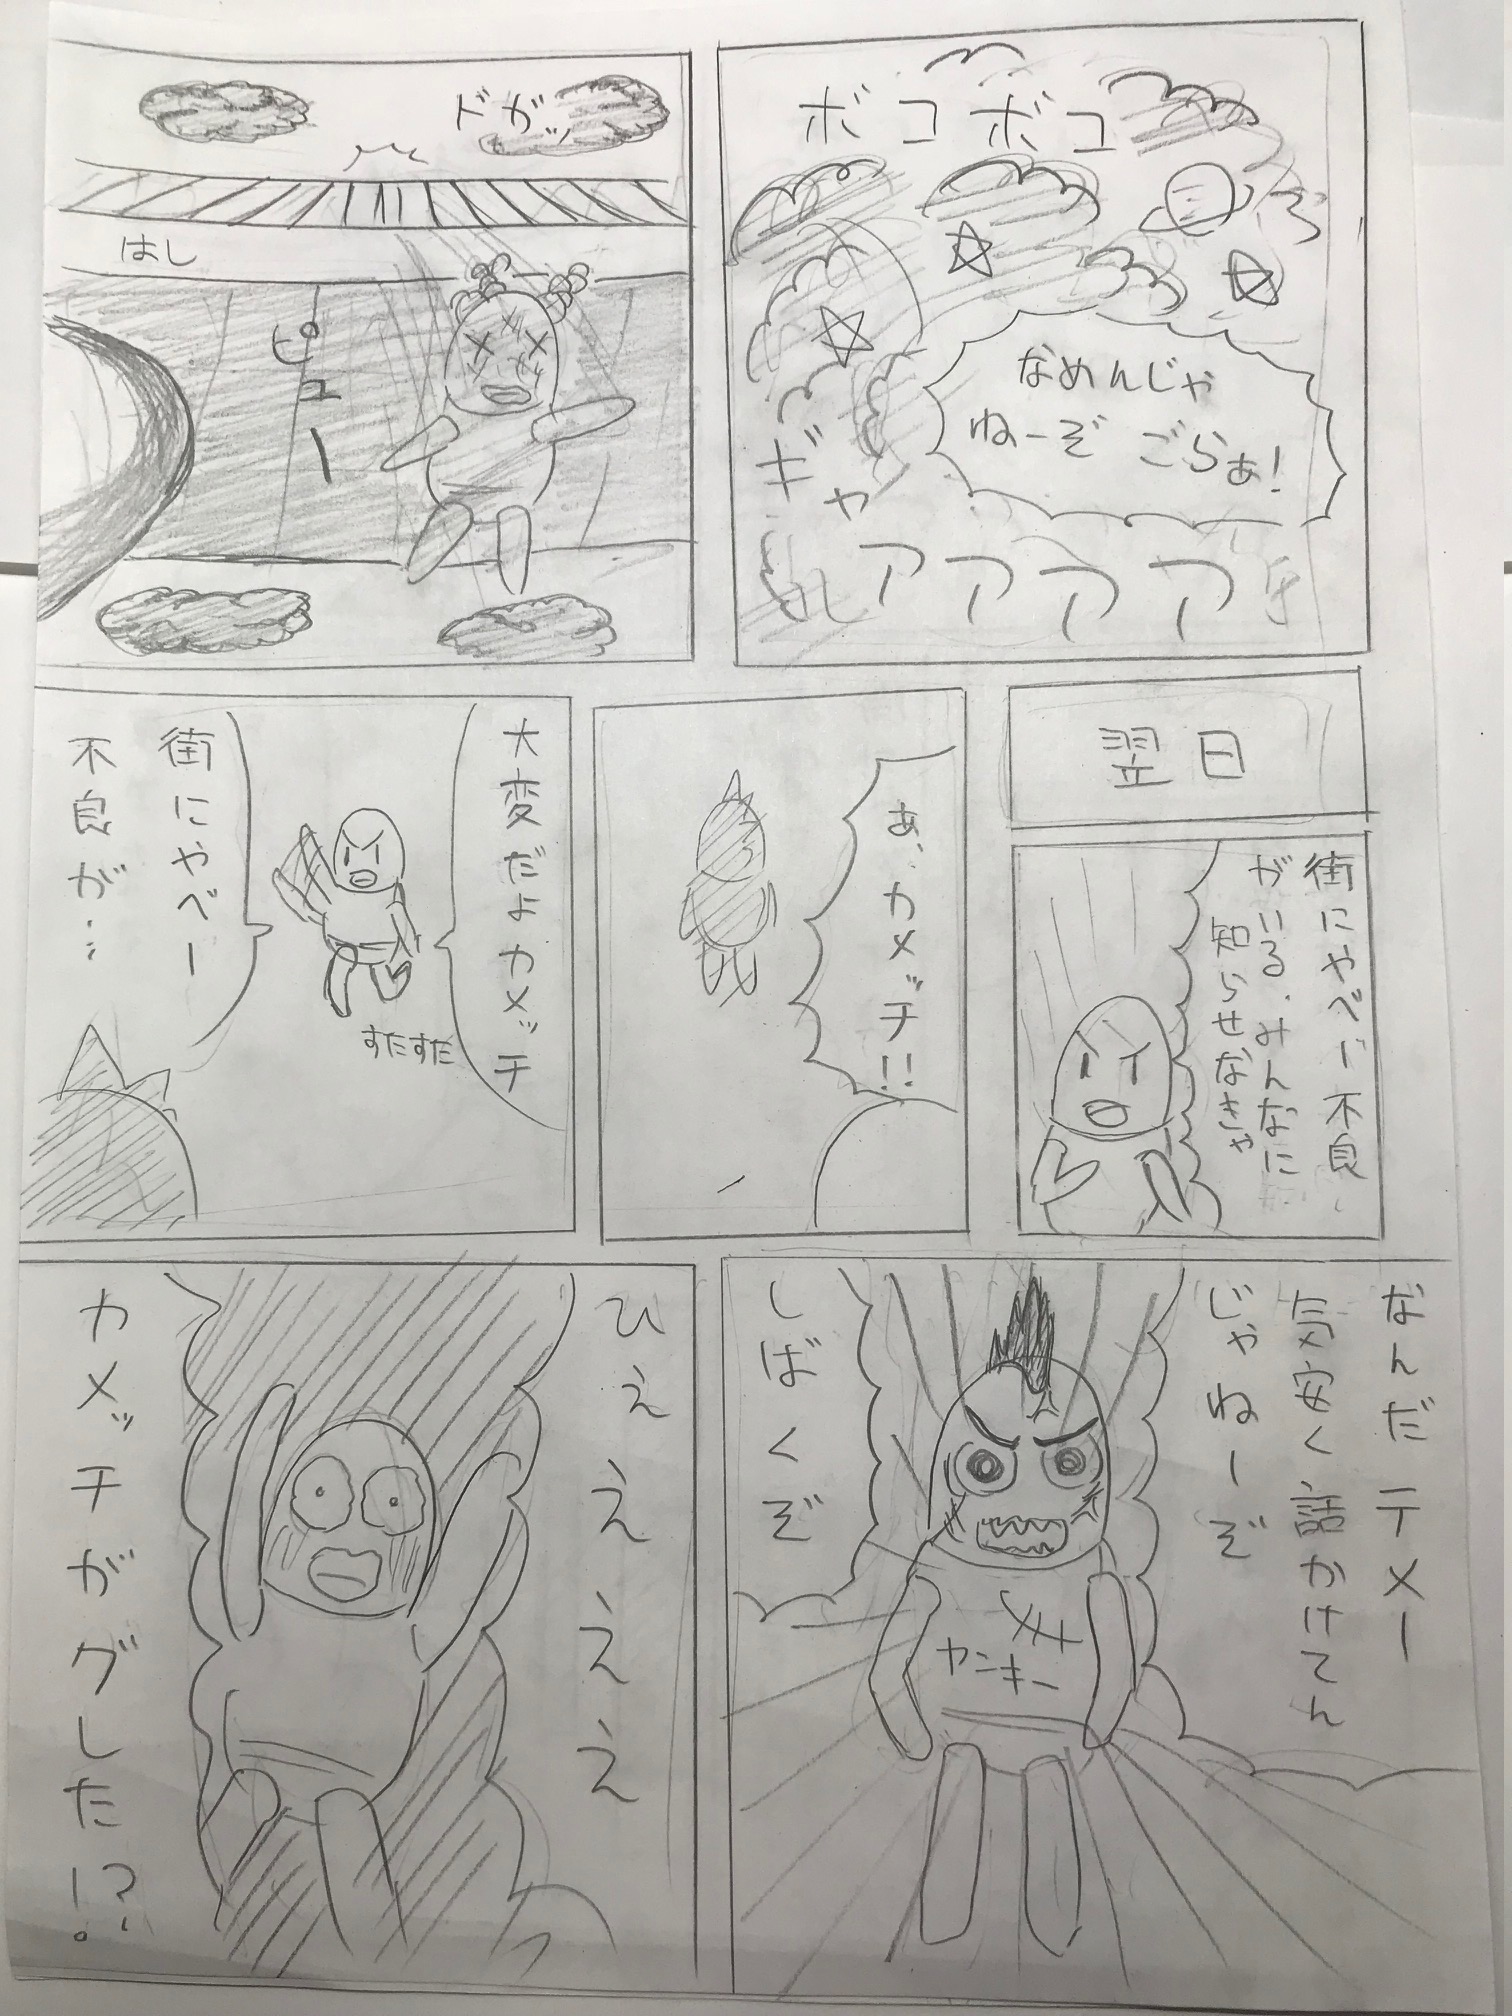 ボコボコ
なめんじゃ
ねーぞ ごらぁ!
ギャ
アアアア
ドガッ
はし
ピュー
翌日
街にやべー不良
がいる、みんなに
知らせなきゃ
あ、カメッチ!!
大変だよカメッチ
すたすた
街にやべー
不良が…
なんだテメー
気安く話かけてん
じゃねーぞ
しばくぞ
ヤンキー
ひええええ
カメッチがグレた!?